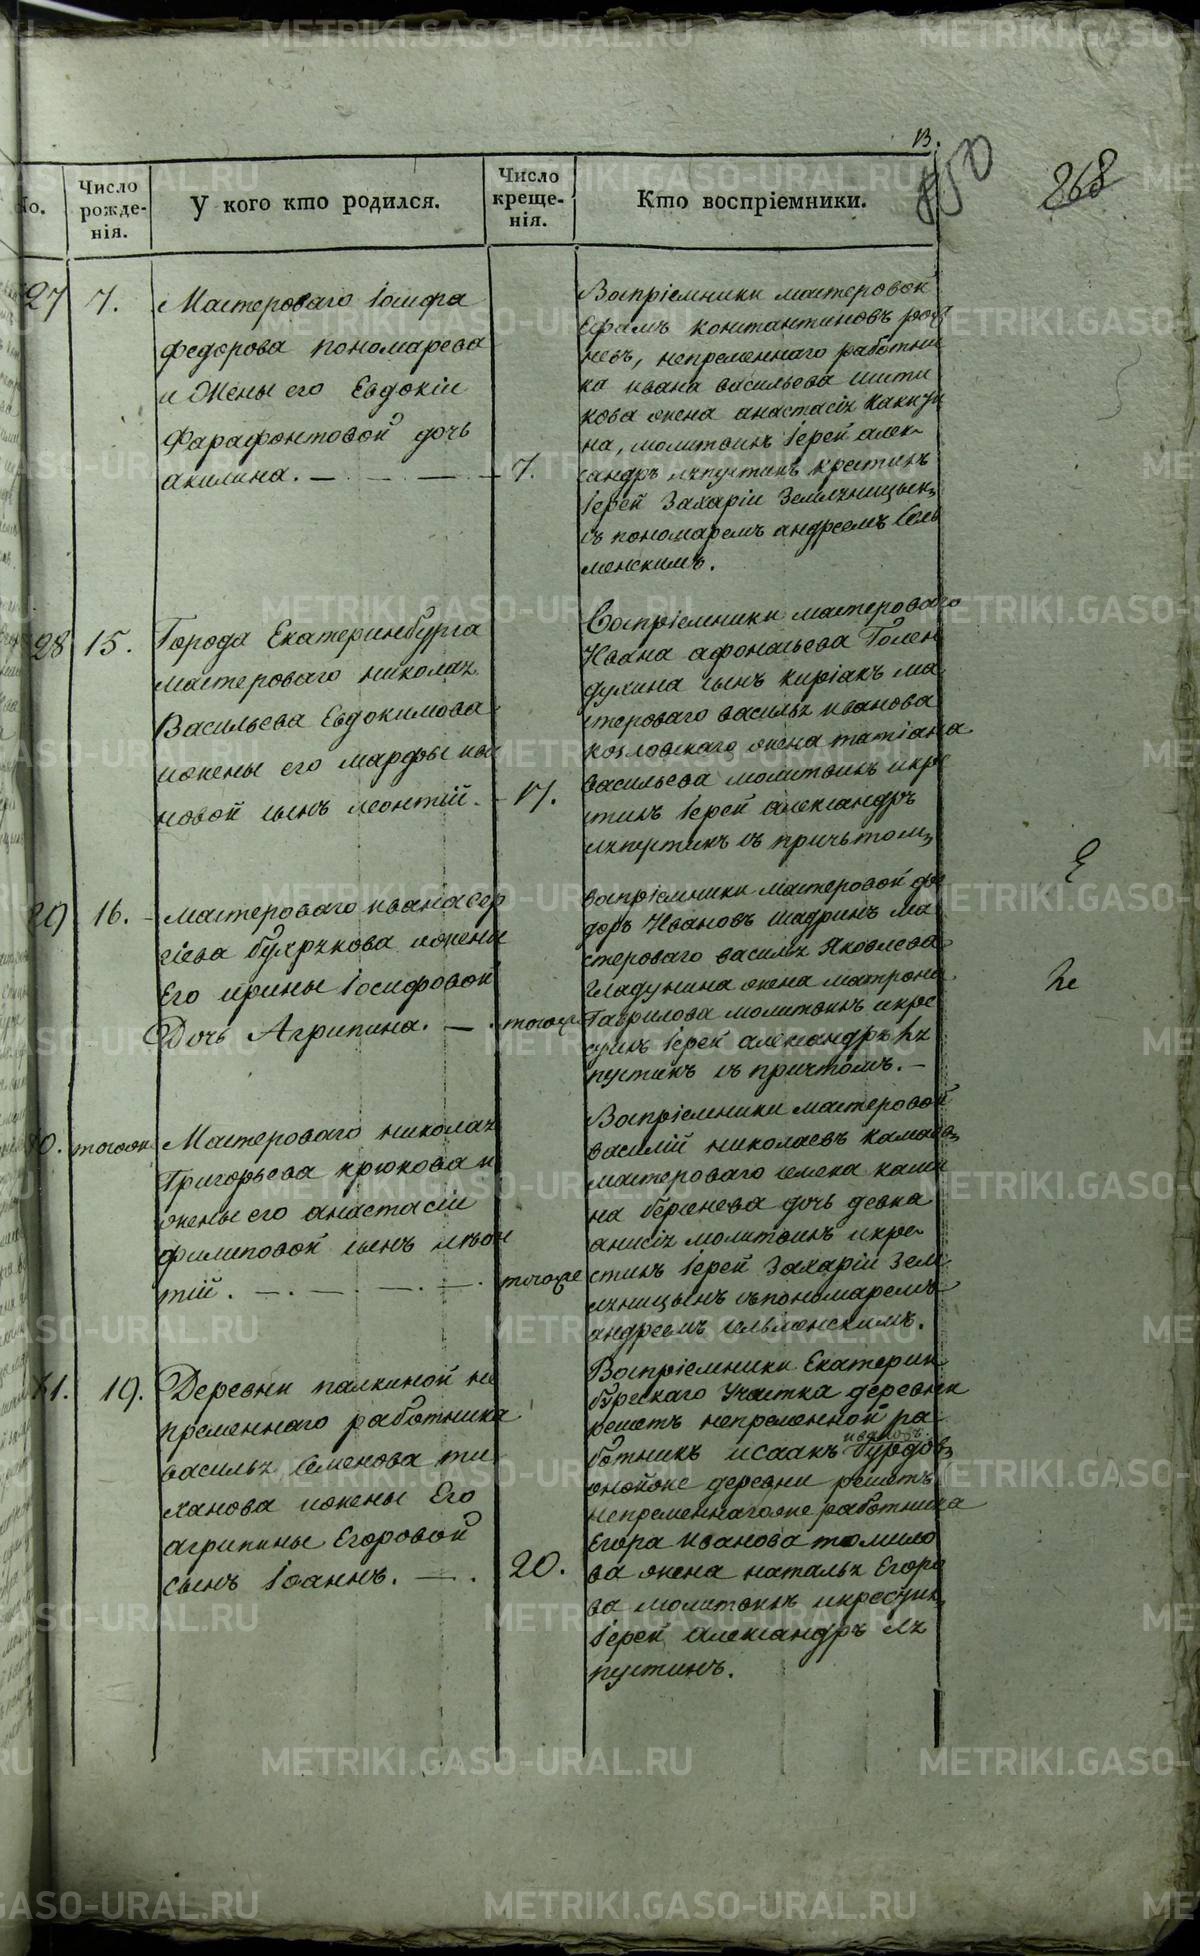 В.
850
868
No.
Число рожде-нія.
У кого кто родился.
Число креще-нія.
Кто воспріемники.
27
7.
Мастероваго Іосифа
федорова пономарева
и Жены его Евдокіи
Фарафонтовой дочь
акилина. — — —
7.
Воспріемники мастеровой
Ефимъ константиновъ
невъ, непременнаго работни
ка ивана васильева шити
кова жена анастасія
на, молитвилъ Іерей алек-
сандръ ляпустинъ крестилъ
Іерей Захаріи Земляницынъ
съ пономаремъ андреемъ Сель
менскимъ.
28
15.
Города Екатеринбурга
мастероваго николая
Васильева Евдокимова
ижены его марфы ива
новой сынъ леонтій. -
17.
Воспріемники мастероваго
Ивана афонасьева Голен
духина сынъ киріакъ ма
стероваго василья иванова
козловскаго жена татіана
васильева молитвилъ икре
стилъ Іерей александръ
ляпустинъ съ причьтомъ
29
16. -
мастероваго ивана сер
гіева бухрякова ижены
Его ирины Іосифовой
Дочь Агрипина. — .
тогоже
воспріемники мастеровой фе
доръ Ивановъ шадринъ ма
стероваго василья Яковлева
Гладунина жена матрона
Гаврилова молитвилъ икре
стилъ Іерей александръ ля
пустинъ съ причтомъ. —
30.
тогоже
Мастероваго николая
Григорьева крюкова и
жены его анастасіи
филиповой сынъ леон
тій. — . — . — . — .
тогоже
Воспріемники мастеровой
василій николаевъ
мастероваго семена
на берсенева дочь девка
анисія молитвилъ икре-
стилъ Іерей Захаріи Земл
яницынъ съпономаремъ
андреемъ сельменскимъ.
31.
19.
Деревни палкиной не
пременнаго работника
василья Семенова ти
ханова ижены Его
агрипины Егоровой
сынъ Іоаннъ. — .
20.
Воспріемники Екатерин
бургскаго Участка деревни
решетъ непременной ра
ботникъ исаакъ ивановъ бурдовъ
онойже деревни решетъ
непременнагоже работника
Егора иванова томило
ва жена наталья Егоро
ва молитвилъ икрестилъ
Іерей александръ ля
пустинъ.
METRIKI.GASO-URAL.RU